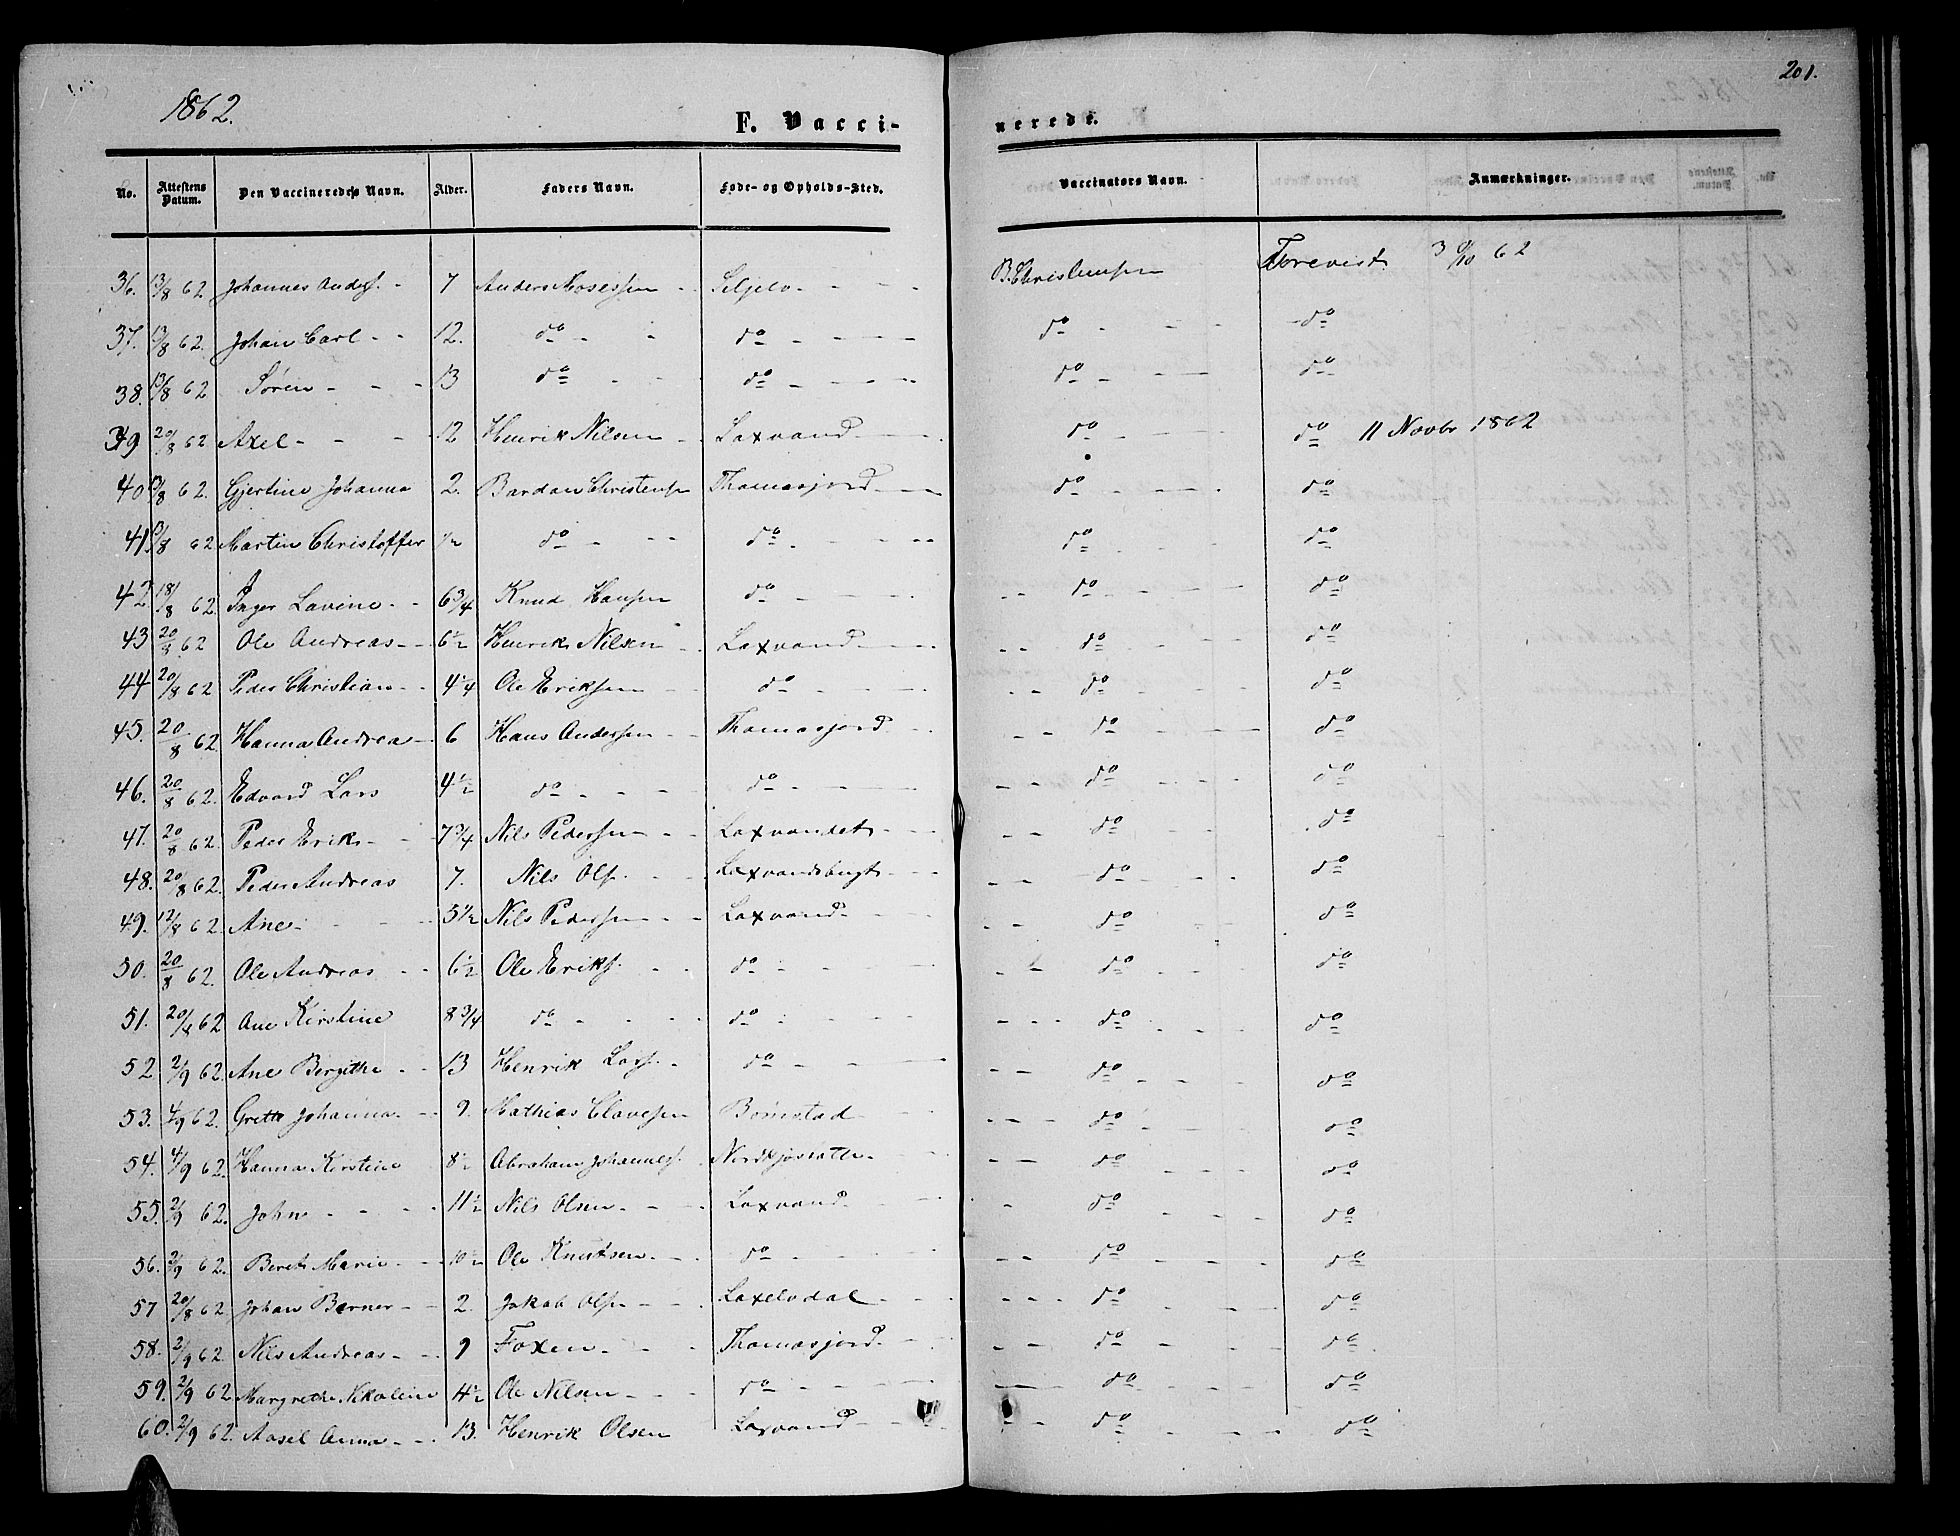 1862.
201.
F. Vacci-
nerede.
No. Attestens Datum. Den Vaccineredes Navn. Alder. Faders Navn. Føde- og Opholds-Sted. Vaccinators Navn. Anmærkninger.
36. 13/8 62 Johannes Anders. - 7 Anders Mosessen - - Seljelv - - - - B. Christensen Forevist. 3 9/10 62
37. 13/8 62. Johan Carl - - 12. do - - do - - - - do - - - do
38. 13/8 62 Søren - - - 13 do - - do - - - - do - - - do
39 20/8 62 Axel - - - 12 Henrik Nilsen - Laxvand - - do - - - do 11 Novbr 1862
40 13/8 62. Gjertine Johanna 2. Bardon Christensen Thomasjord - - do - - - do
41 13/8 62 Martin Christoffer 1/2 do - - - do - - - - do - - - do
42 18/8 62. Inger Lavine - - 6 3/4 Knud Hansen do - - - - - - do - - - do
43 20/8 62 Ole Andreas - - 6 1/2 Henrik Nilsen - Laxvand - - - - do - - do
44 20/8 62 Peder Christian - - 4 1/4 Ole Eriksen - - do - - - - - do - - - do
45. 20/8 62. Hanna Andrea - 6 Hans Andersen - - Thomasjord - - - do - - - do
46. 20/8 62. Edvard Lars 4 1/2 do - - - do - - - - - - do - - - do
47. 20/8 62 Peder Erik - - 7 3/4 Nils Pedersen - - Laxvandet - - - - do - - - do
48. 20/8 62. Peder Andreas 7. Nils Ols. - - Laxvandsbugt - - - - do - - - do
49. 12/8 62. Ane - - - 5 1/2 Nils Pedersen - - Laxvand - - - - - do - - - do
50. 20/8 62. Ole Andreas - - 6 1/2 Ole Eriks. - - do - - - - - do - - - do
51. 20/8 62 Ane Kirstine 8 3/4 do - - - - do - - - - - - do - - - do
52 2/9 62. Ane Bergitha - - 13 Henrik Lars. - do - - - - - do - - - do
53. 4/9 62. Grette Johanna - - 9. Mathias Clavesen Bomstad - - - - - do - - - do
54. 4/9 62. Hanna Kirstine 8 1/2 Abraham Johannes. - - - do - - - do
55. 2/9 62. John - - - - 11 1/2 Nils Olsen - - - Laxvand - - - do - - - do
56. 2/9 62. Beret Marie - - 10 1/2 Ole Knutsen - - do - - - - - - do - - - do
57 20/8 62 Johan Berner - - 2. Jakob Ols. - - - Laxelvdal - - - - - do - - - do
58. 2/9 62. Nils Andreas - - 9 Foxen - - - Thomasjord - - - do - - - do
59. 2/9 62. Margrethe Nikoline 4 1/2 Ole Nilsen - - - do - - - - - do - - - do
60. 2/9 62. Aasel Anna - - 13. Henrik Olsen Laxvand - - - - - do - - - do